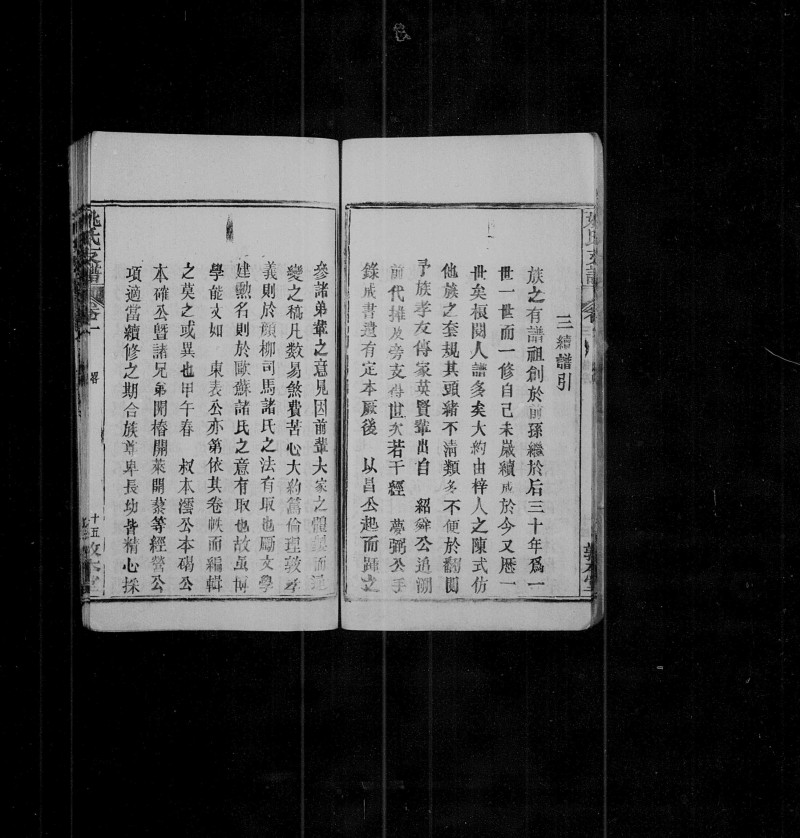 三續譜引
族之有譜祖創於前孫繼於后三十年爲一
世一世而一修自己未歲續成於今又歷一
世矣梖閱人譜多矣大約由梓人之陳式仿
他族之套規其頭緒不清類多不便於翻閱
予族孝友傳家英賢輩出自 紹舜公追溯
前代摧及旁支得世次若干經 夢弼公手
錄成書遺有定本厥後 以昌公起而踵之
參諸弟輩之意見因前輩大家之體義而通
變之稿凡數易煞費苦心大約篇倫理敦孝
義則於顏柳司馬諸氏之法有取也勵文學
建勲名則於歐蘇諸氏之意有取也故虽博
學能文如 東表公亦第依其卷帙而編輯
之莫之或異也甲午春 叔本澐公本碭公
本確公暨諸兄弟開椿開萊開蓁等經營公
項適當續修之期合族尊卑長幼皆精心採
姚氏支譜
卷一
畧
十五
敦本堂